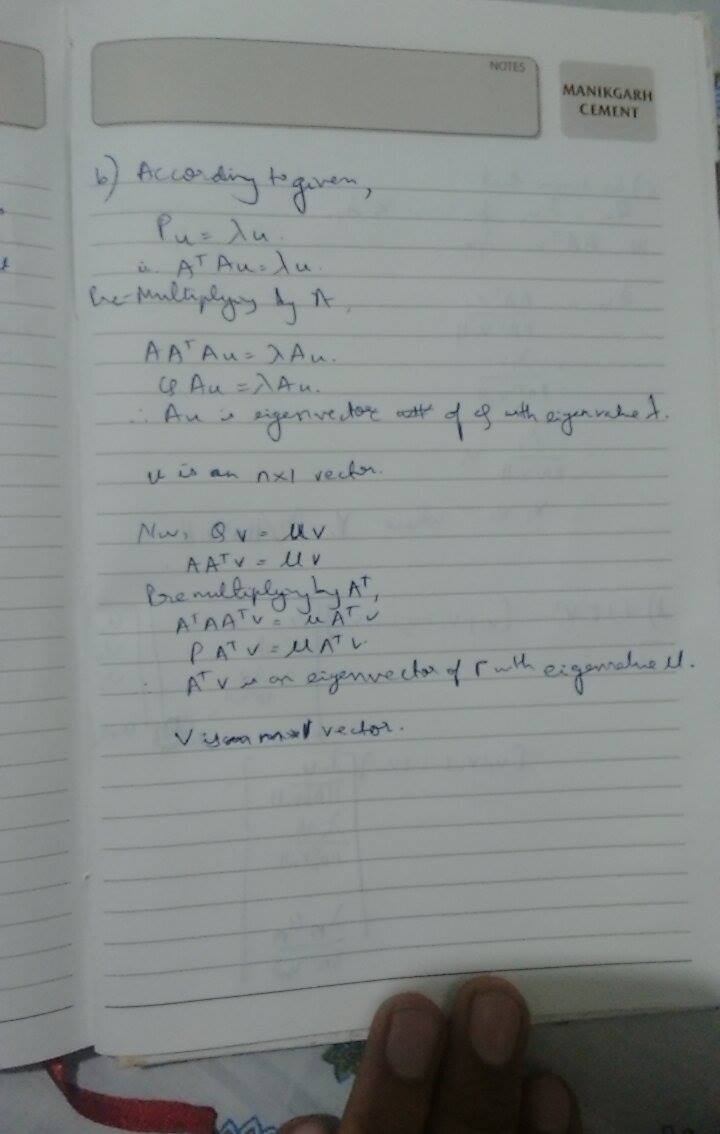 NOTES
MANIKGARH
CEMENT
b) According to given,
Pu = λu.
i.e. AᵀAu = λu.
Pre-Multiplying by A,
AAᵀAu = λAu.
Q Au = λAu.
∴ Au is eigenvector of Q with eigenvalue λ.
u is an n×1 vector.
Now, Qv = μv
AAᵀv = μv
Premultiplying by Aᵀ,
AᵀAAᵀv = μAᵀv
P Aᵀv = μAᵀv
∴ Aᵀv is an eigenvector of P with eigenvalue μ.
V is an m×1 vector.